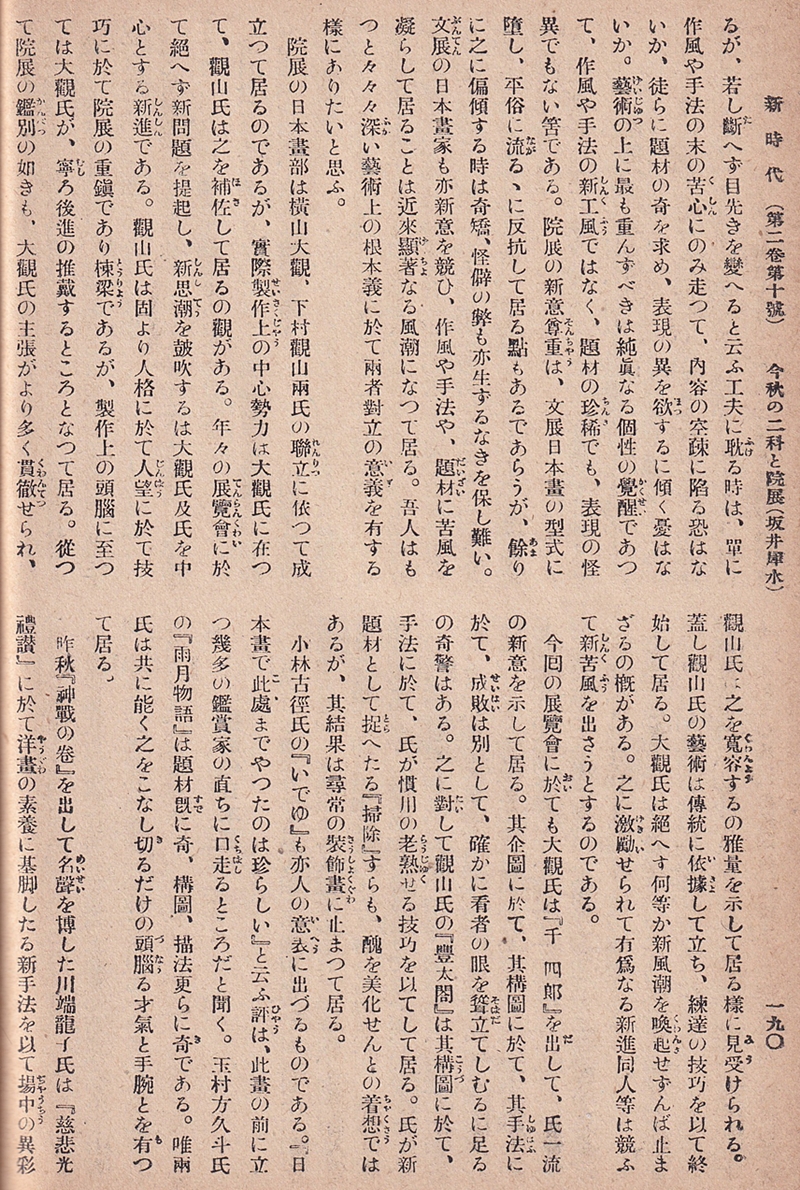 新時代 （第二卷第十號） 今秋の二科と院展（坂井犀水） 一九〇
るが、若し斷へず目先きを變へると云ふ工夫に耽る時は、單に
作風や手法の末の苦心にのみ走つて、内容の空疎に陷る恐はな
いか、徒らに題材の奇を求め、表現の異を欲するに傾く憂はな
いか。藝術の上に最も重んずべきは純眞なる個性の覺醒であつ
て、作風や手法の新工風ではなく、題材の珍稀でも、表現の怪
異でもない筈である。院展の新意尊重は、文展日本畫の型式に
墮し、平俗に流るゝに反抗して居る點もあるであらうが、餘り
に之に偏傾する時は奇矯、怪僻の弊も亦生ずるなきを保し難い。
文展の日本畫家も亦新意を競ひ、作風や手法や、題材に苦風を
凝らして居ることは近來顯著なる風潮になつて居る。吾人はも
つと々々々深い藝術上の根本義に於て兩者對立の意義を有する
樣にありたいと思ふ。
院展の日本畫部は橫山大觀、下村觀山兩氏の聯立に依つて成
立つて居るのであるが、實際製作上の中心勢力は大觀氏に在つ
て、觀山氏は之を補佐して居るの觀がある。年々の展覽會に於
て絕へず新問題を提起し、新思潮を鼓吹するは大觀氏及氏を中
心とする新進である。觀山氏は固より人格に於て人望に於て技
巧に於て院展の重鎭であり棟梁であるが、製作上の頭腦に至つ
ては大觀氏が、寧ろ後進の推戴するところとなつて居る。從つ
て院展の鑑別の如きも、大觀氏の主張がより多く貫徹せられ、
觀山氏は之を寬容するの雅量を示して居る樣に見受けられる。
蓋し觀山氏の藝術は傳統に依據して立ち、練達の技巧を以て終
始して居る。大觀氏は絕へす何等か新風潮を喚起せずんば止ま
ざるの槪がある。之に激勵せられて有爲なる新進同人等は競ふ
て新苦風を出さうとするのである。
今囘の展覽會に於ても大觀氏は『千 四郞』を出して、氏一流
の新意を示して居る。其企圖に於て、其構圖に於て、其手法に
於て、成敗は別として、確かに看者の眼を聳立てしむるに足る
の奇警はある。之に對して觀山氏の『豐太閤』は其構圖に於て、
手法に於て、氏が慣用の老熟せる技巧を以てして居る。氏が新
題材として捉へたる『掃除』すらも、醜を美化せんとの着想では
あるが、其結果は尋常の裝飾畫に止まつて居る。
小林古徑氏の『いでゆ』も亦人の意表に出づるものである。『日
本畫で此處までやつたのは珍らしい』と云ふ評は、此畫の前に立
つ幾多の鑑賞家の直ちに口走るところだと聞く。玉村方久斗氏
の『雨月物語』は題材旣に奇、構圖、描法更らに奇である。唯兩
氏は共に能く之をこなし切るだけの頭腦る才氣と手腕とを有つ
て居る。
昨秋『神戰の卷』を出して名聲を博した川端龍子氏は『慈悲光
禮讃』に於て洋畫の素養に基脚したる新手法を以て場中の異彩